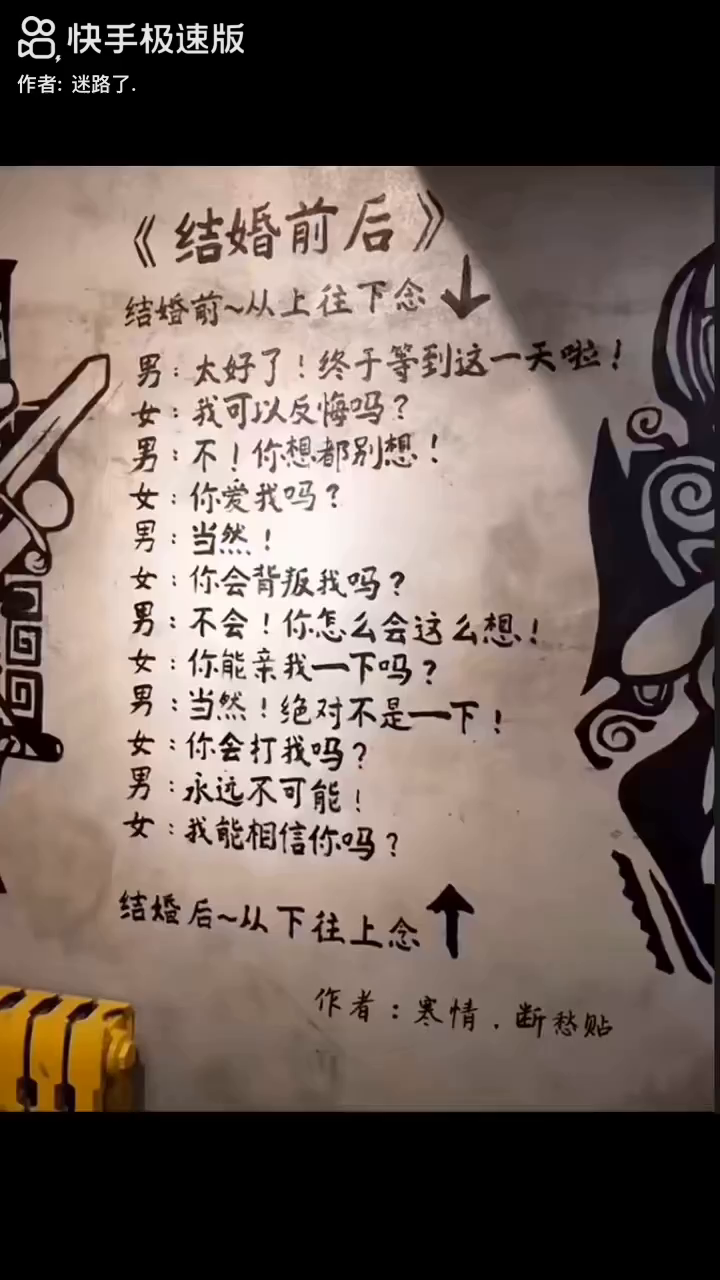 快手极速版
作者: 迷路了.
《结婚前后》
结婚前~从上往下念 ↓
男：太好了！终于等到这一天啦！
女：我可以反悔吗？
男：不！你想都别想！
女：你爱我吗？
男：当然！
女：你会背叛我吗？
男：不会！你怎么会这么想！
女：你能亲我一下吗？
男：当然！绝对不是一下！
女：你会打我吗？
男：永远不可能！
女：我能相信你吗？
结婚后~从下往上念 ↑
作者：寒情．断愁贴